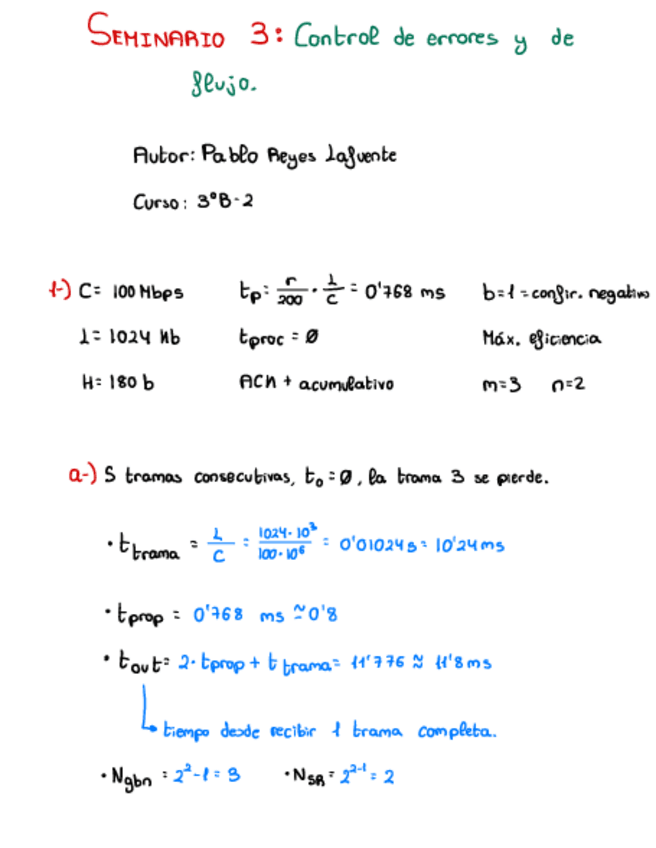 SEMINARIO 3: Control de errores y de
flujo.
Autor: Pablo Reyes Lafuente
Curso: 3ºB-2
1-) C= 100 Mbps tp: r/200 · L/C = 0'768 ms b=1=confir. negativo
L= 1024 Kb tproc = Ø Máx. eficiencia
H= 180 b ACK + acumulativo m=3 n=2
a-) 5 tramas consecutivas, to = Ø, la trama 3 se pierde.
· t trama = L/C = 1024·10³/100·10⁶ = 0'01024s = 10'24 ms
· tprop = 0'768 ms ≃ 0'8
· tout= 2· tprop + t trama= 11'776 ≈ 11'8 ms
tiempo desde recibir 1 trama completa.
· Ngbn = 2²-1 = 3 · NSR = 2²⁻¹ = 2